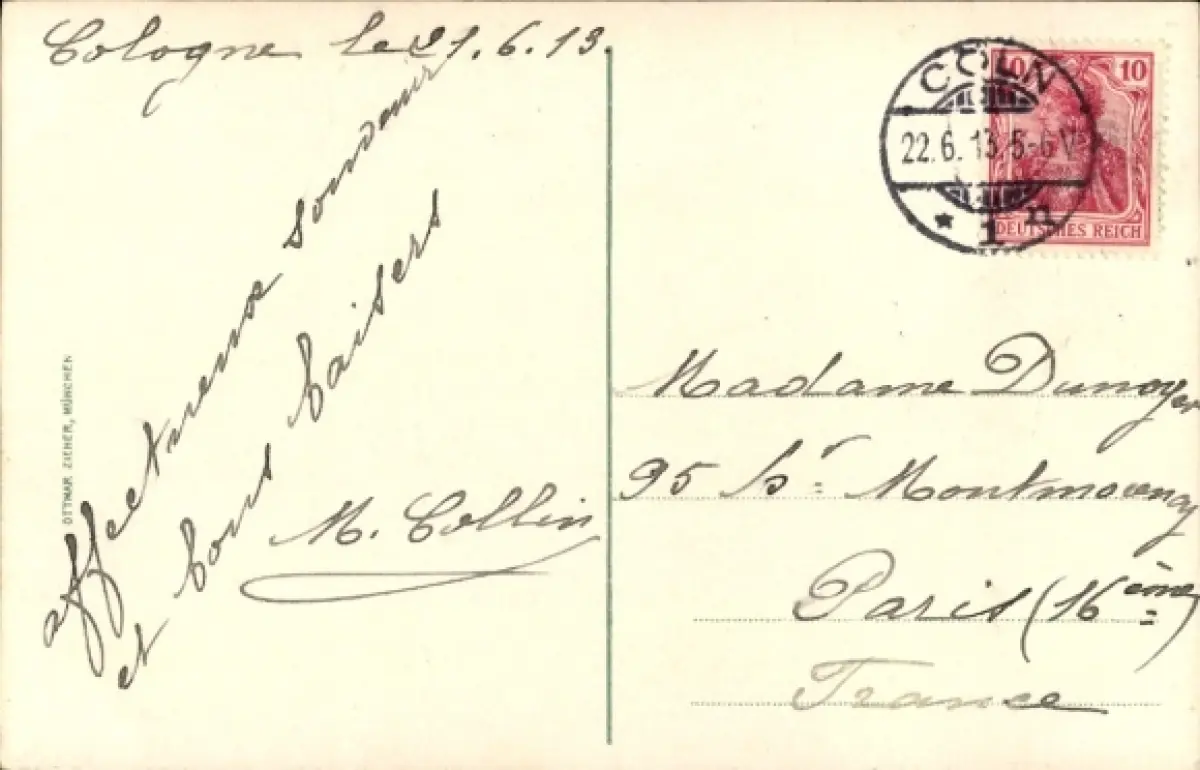 Cologne le 21.6.13.
affectueux souvenir
et bons baisers
M. Collin
OTTMAR ZIEHER, MÜNCHEN
CÖLN
22.6.13 5-6V
* 1 n
10 10
DEUTSCHES REICH
Madame Dunoyer
95 Bd Montmorency
Paris (16ème)
France